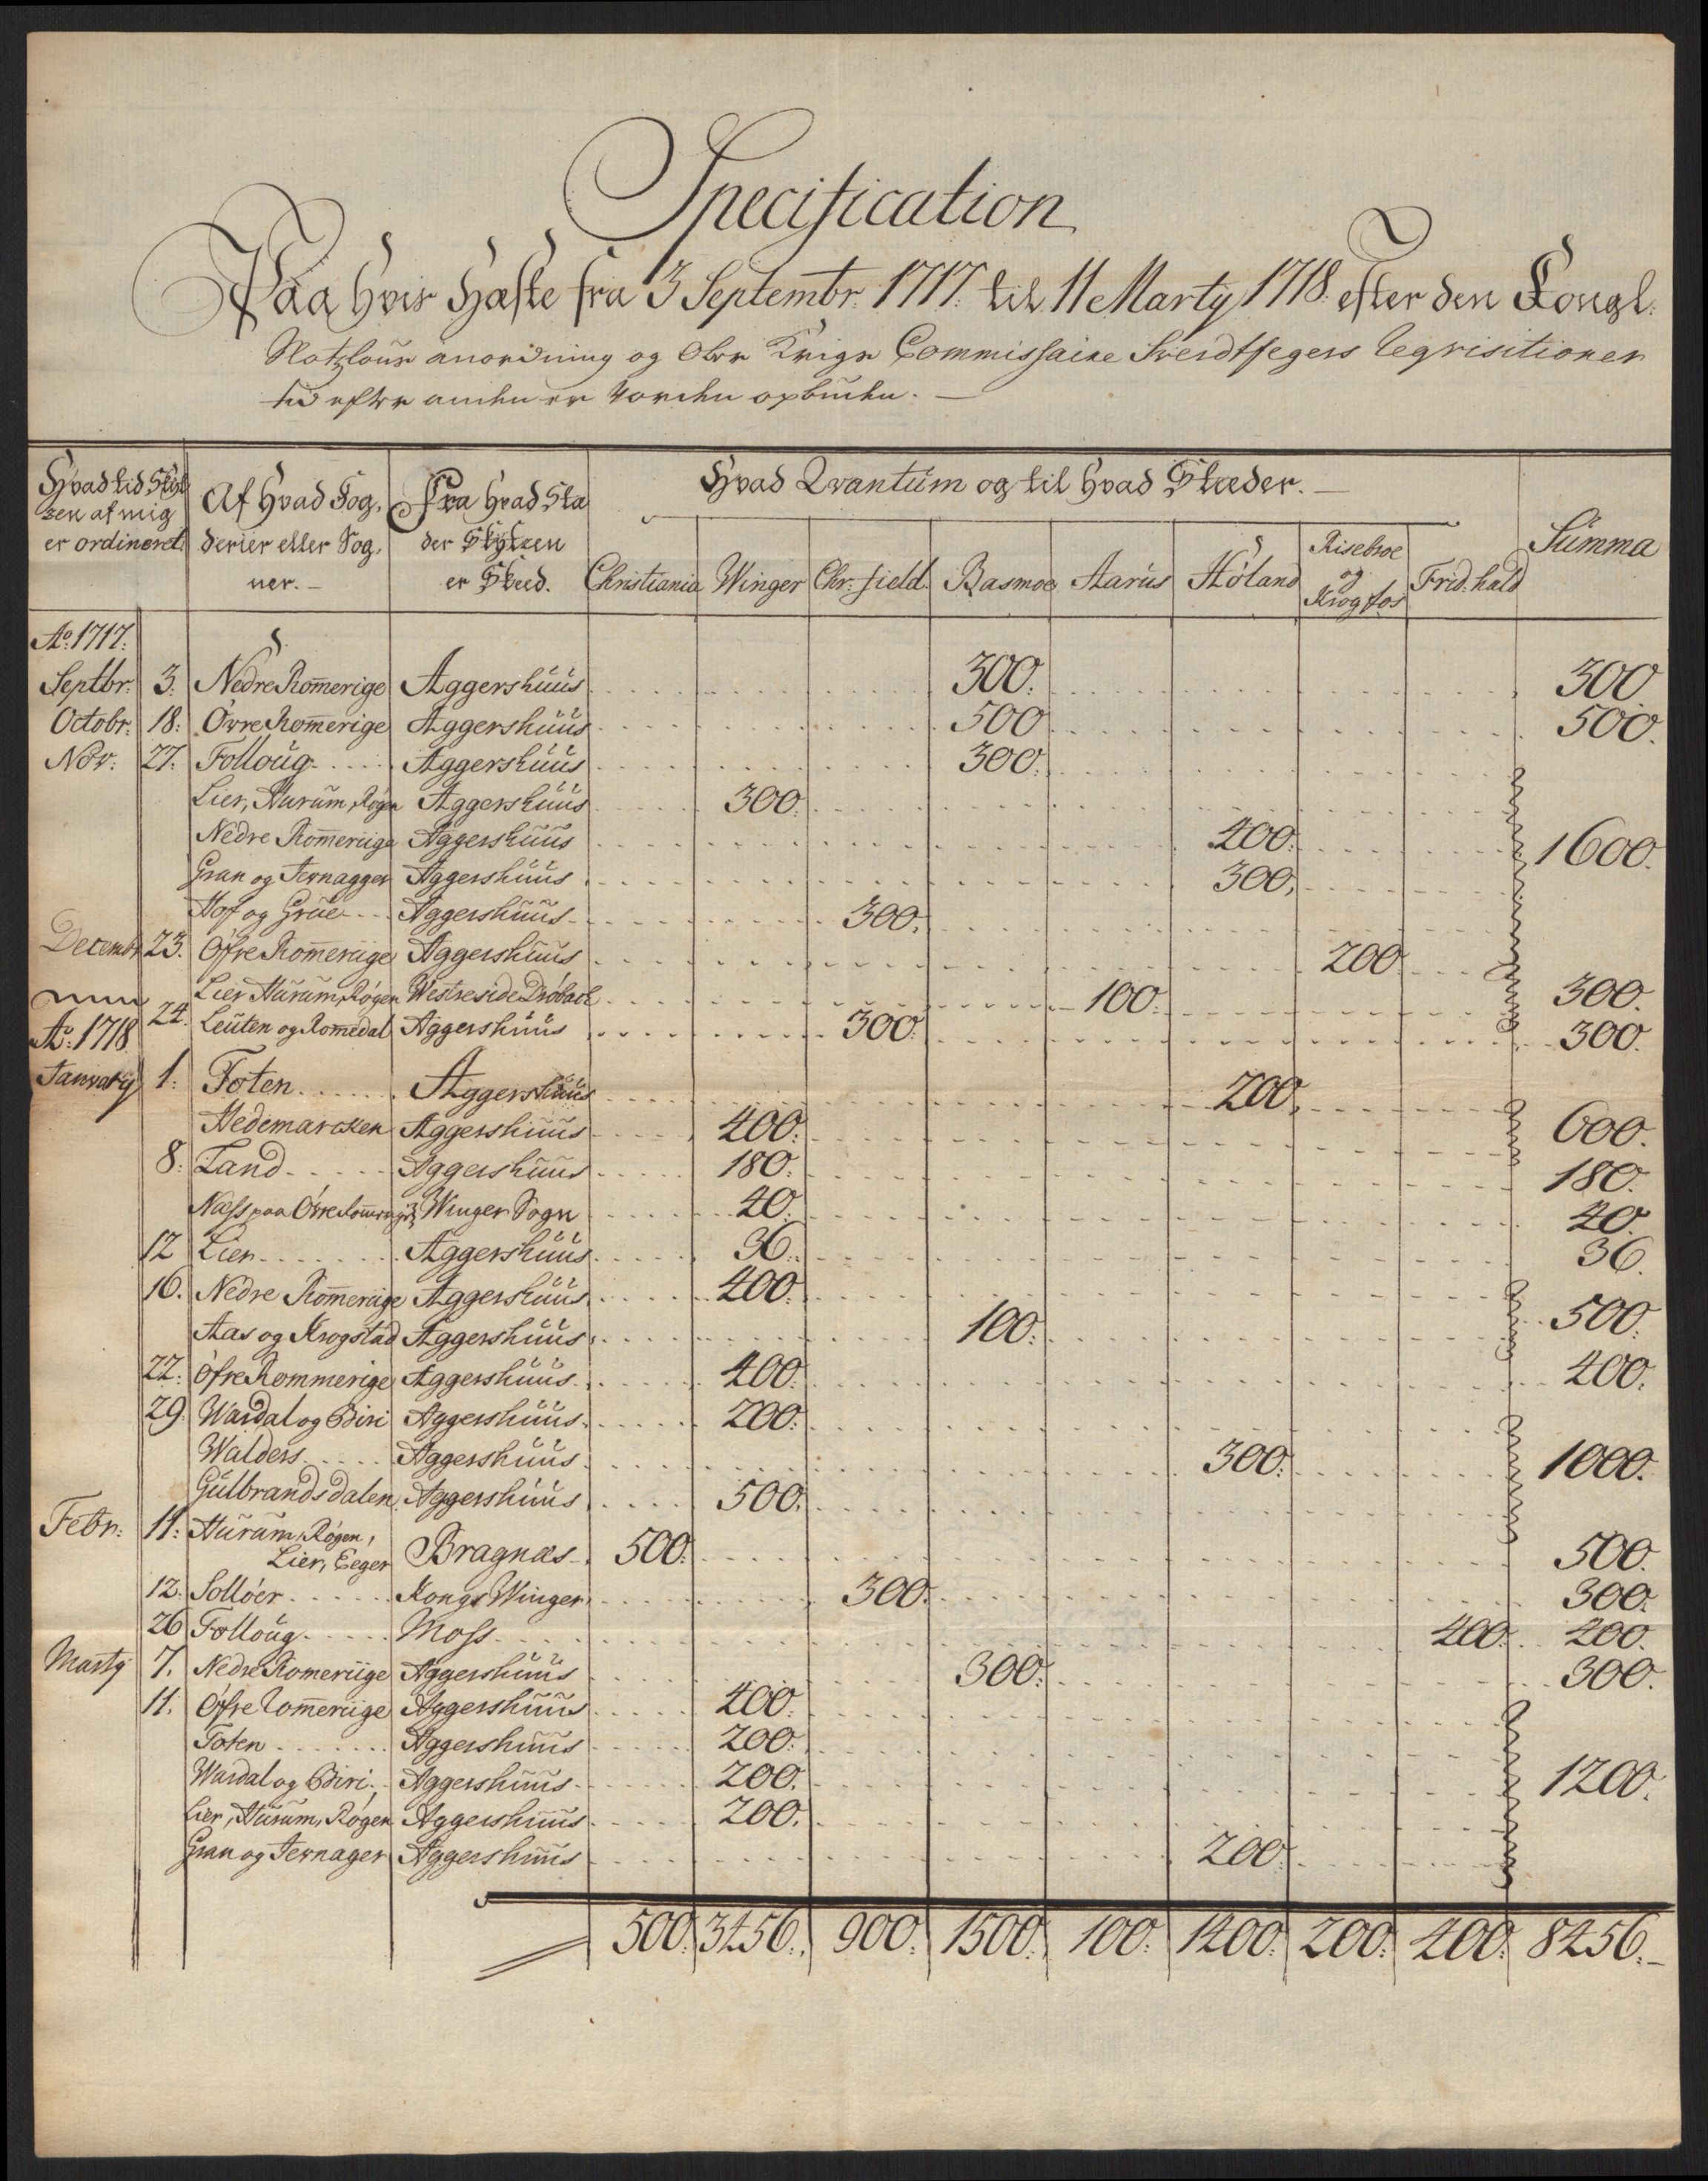 Specification
Paa hvis Hæste fra 3 Septembr. 1717. til 11 Marty 1718. efter den Kongl.
Slotzlous anordning og Ober Krigs Commissaire Sverdtfegers Reqvisitioner
tid efter anden er vorden opbuden. —
Hvad tid Skyt
zen af mig
er ordineret.
Af Hvad Fog,
derier eller Sog,
ner. —
Fra Hvad Stæ
der Skytzen
er Skeed.
Hvad Qvantum og til hvad Stæder. —
Christiania Winger Chr: field. Basmoe Aarus Höland Risebroe og Krogfos Frid: hald Summa
Ao. 1717.
Septbr. 3. Nedre Romerige Aggershuus 300. 300.
Octobr. 18. Övre Romerige Aggershuus 500 500.
Nov. 27. Folloug Aggershuus 300.
Lier, Hurum, Rögen Aggershuus 300.
Nedre Romeriige Aggershuus 400. 1600.
Gran og Jevnagger Aggershuus 300.
Hof og Grue Aggershuus 300.
Decembr 23. Öfre Romeriige Aggershuus 200
Lier Hurum, Rögen Westre side Dröbach 100. 300.
24. Leuten og Romedal Aggershuus 300. 300.
Ao. 1718
January 1. Toten Aggershuus 200.
Hedemarcken Aggershuus 400. 600.
8. Land Aggershuus 180. 180.
Næss paa Övre Romerige Winger Sogn 40. 40.
12 Lier Aggershuus 36. 36.
16. Nedre Romeriige Aggershuus 400.
Aas og Krogstad Aggershuus 100. 500.
22. Öfre Rommerige Aggershuus 400. 400.
29. Wardal og Biri Aggershuus 200.
Walders Aggershuus 300. 1000.
Gulbrandsdalen Aggershuus 500.
Febr. 11. Hurum, Rögen,
Lier, Eeger Bragnæs 500. 500.
12. Sollöer Kongs Winger 300. 300.
26 Folloug Moss 400. 400.
Marty 7. Nedre Romeriige Aggershuus 300. 300.
11. Öfre Romeriige Aggershuus 400.
Toten Aggershuus 200.
Wardal og Biri Aggershuus 200. 1200.
Lier, Hurum, Rögen Aggershuus 200.
Gran og Jevnager Aggershuus 200.
500. 3456. 900. 1500. 100. 1400. 200. 400. 8456.